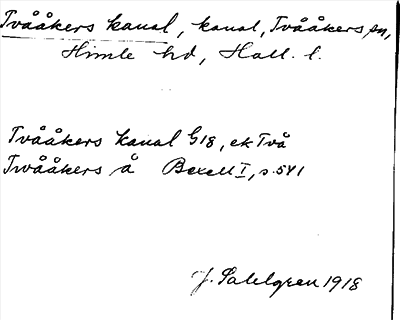 Tvååkers kanal, kanal, Tvååkers sn,
Himle hd, Hall. l.
Tvååkers kanal G18, ek Två
Twååkers å Bexell I, s. 541
J. Sahlgren 1918